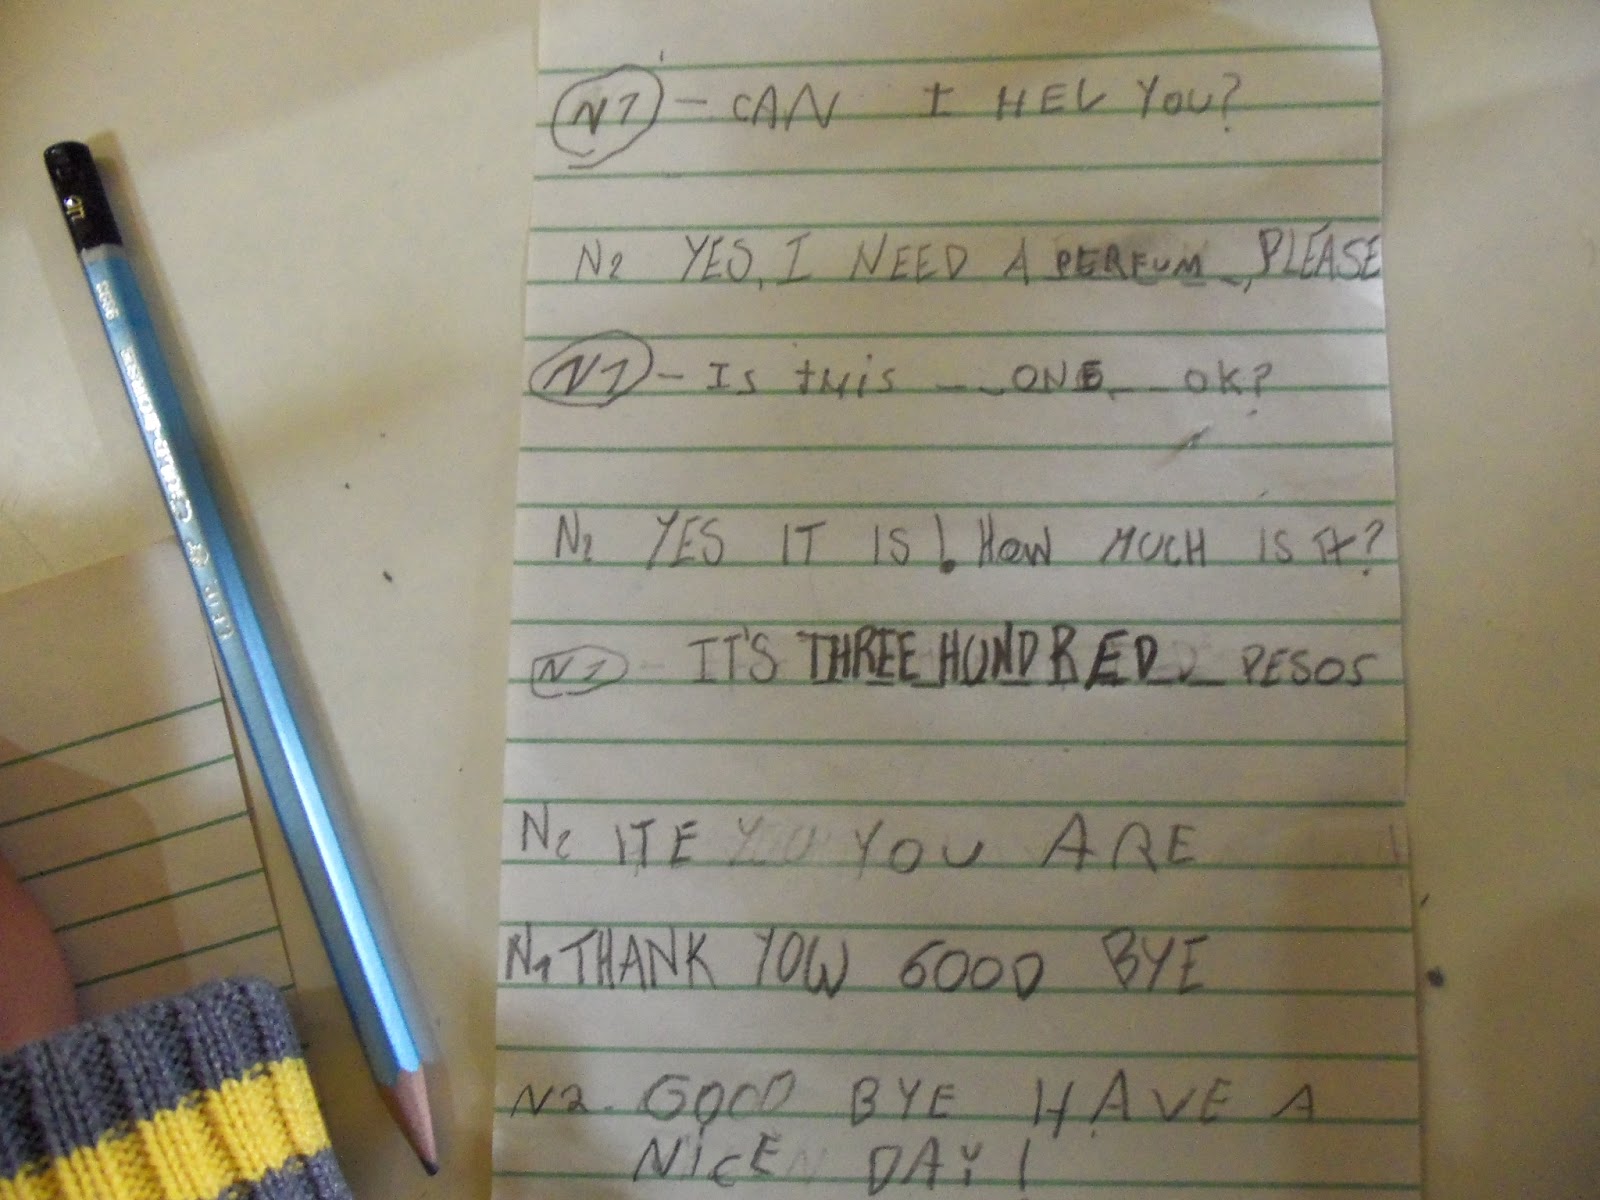 N1 - CAN I HEL YOU?
N2 YES, I NEED A PERFUM, PLEASE
N1 - Is this ONE OK?
N2 YES IT IS! HOW MUCH IS IT?
N1 - IT'S THREE HUNDRED PESOS
N2 ITE YOU ARE
N1 THANK YOW GOOD BYE
N2. GOOD BYE HAVE A
NICE DAY!